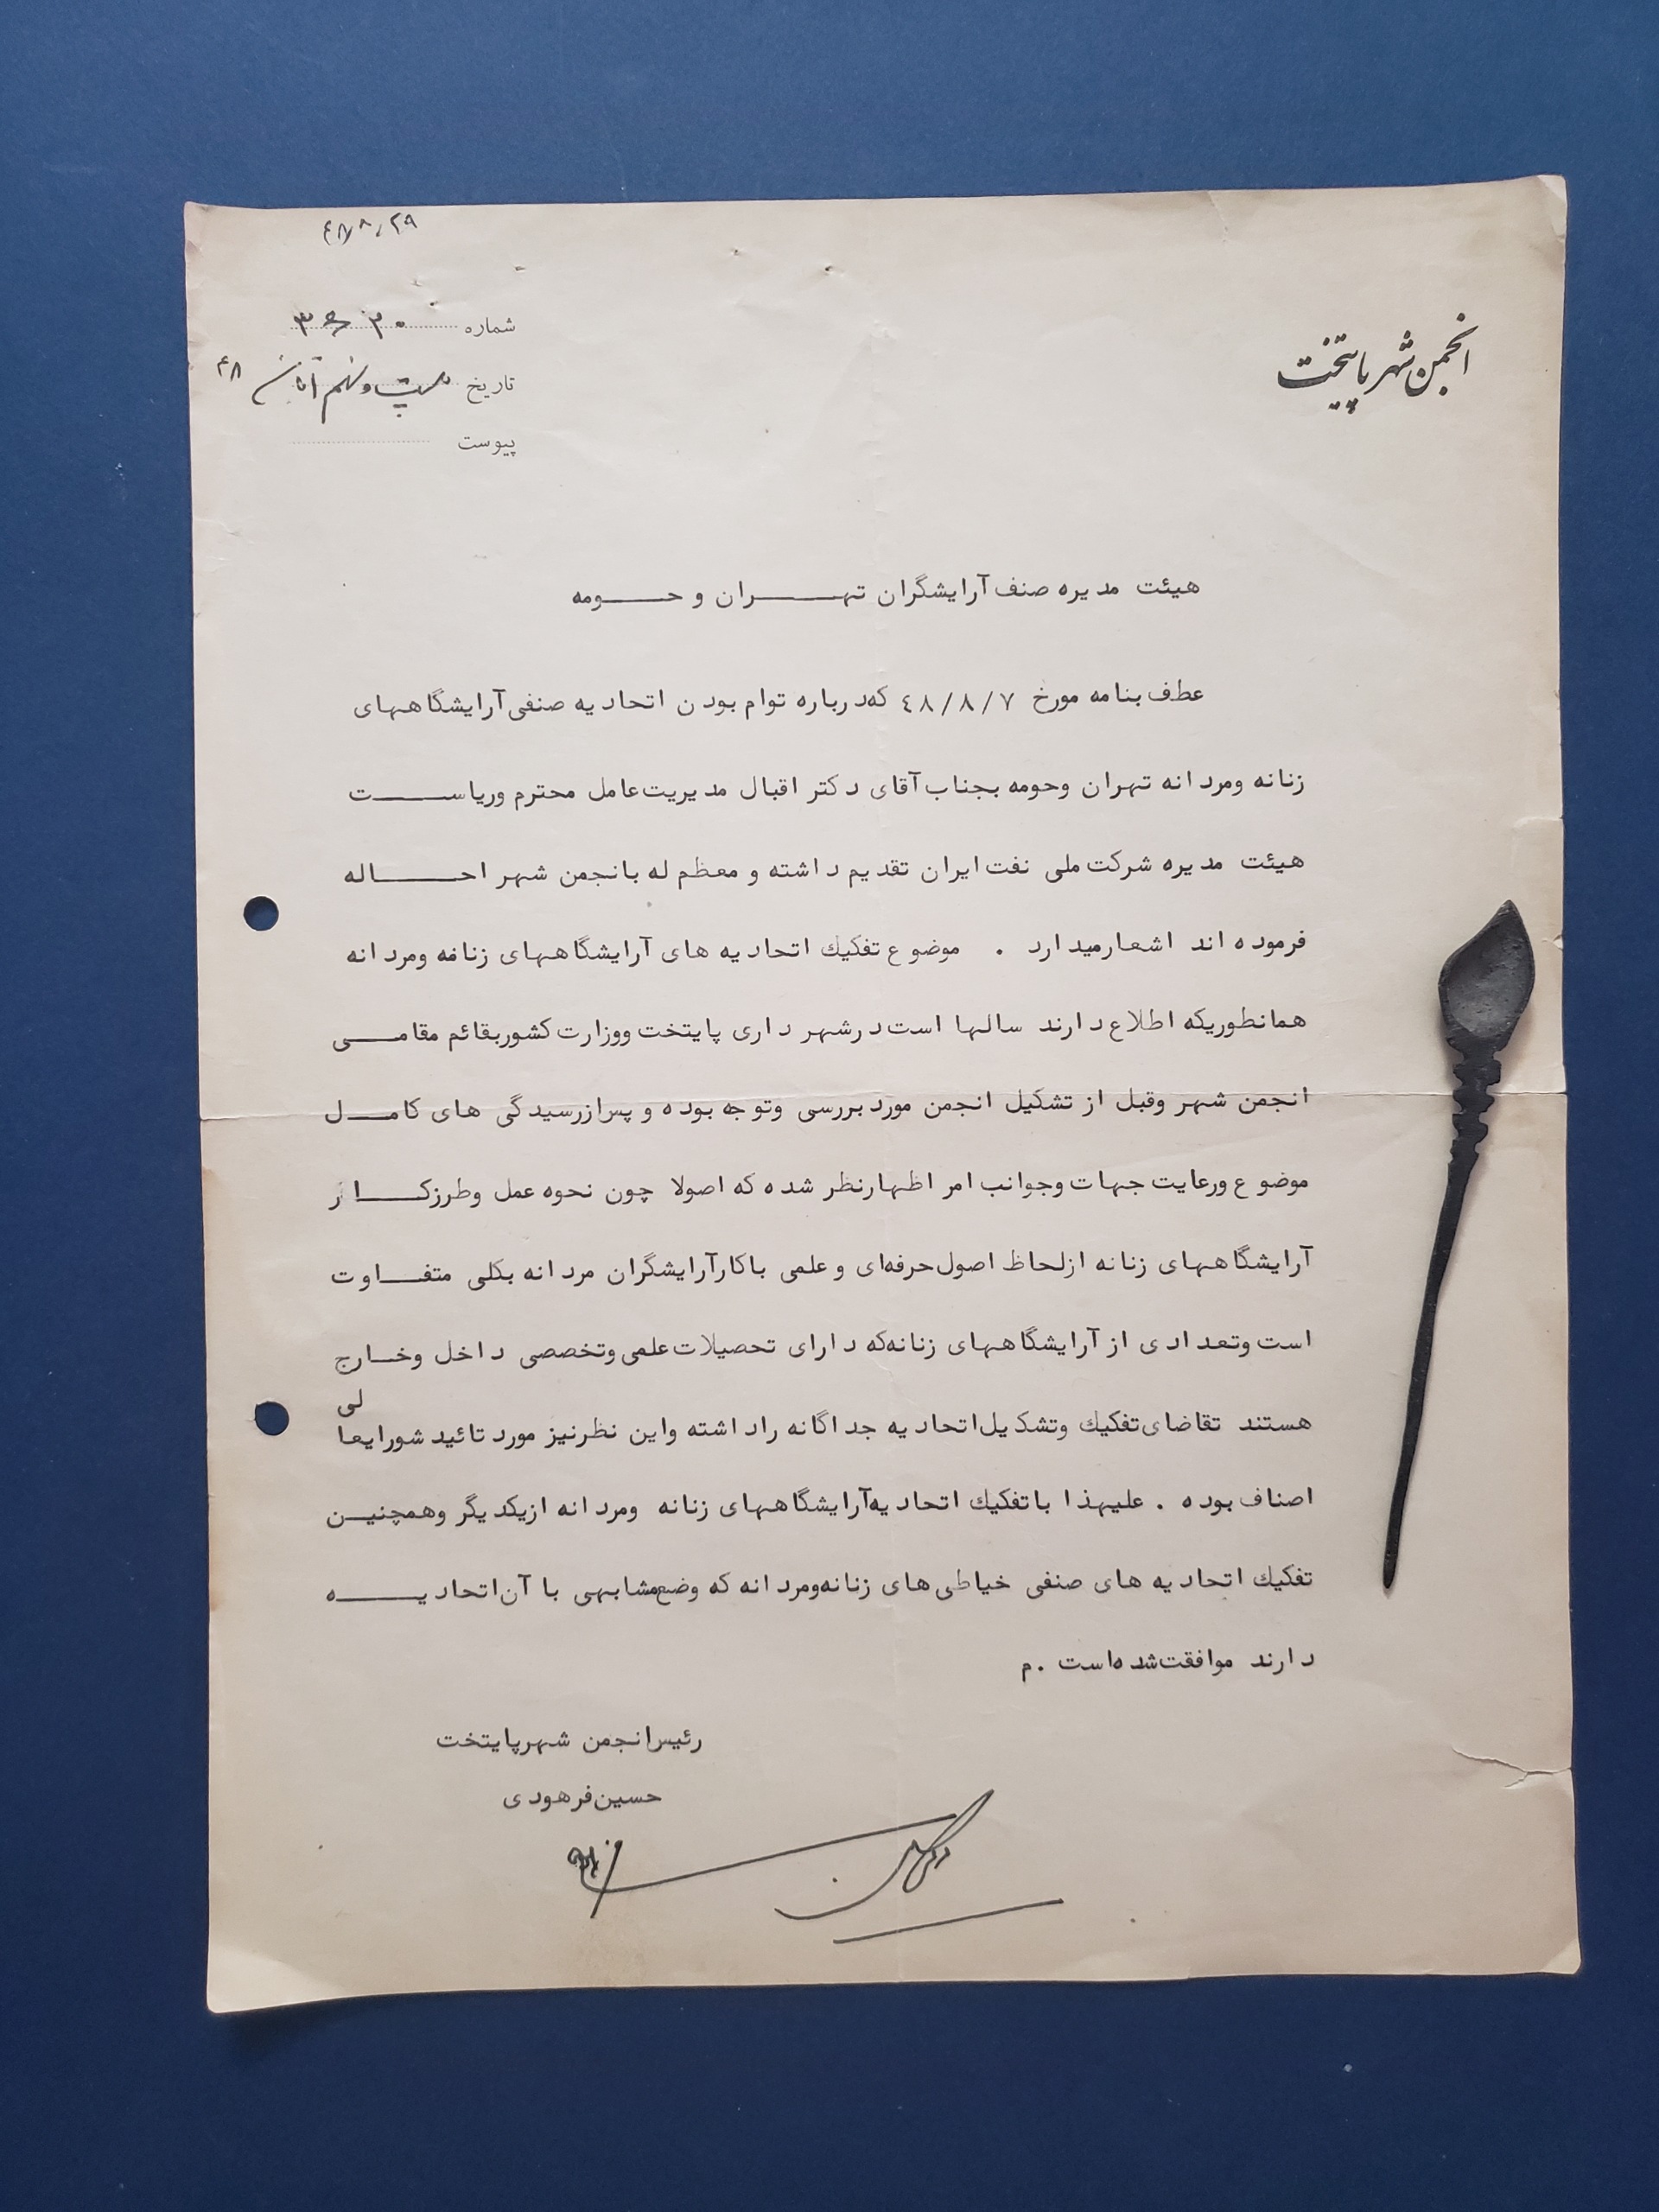 ۴۸/۸/۲۹
انجمن شهر پایتخت
شماره
تاریخ بیست و نهم آبان ۴۸
پیوست
هیئت مدیره صنف آرایشگران تهران و حومه
عطف بنامه مورخ ۴۸/۸/۷ که درباره توام بودن اتحادیه صنفی آرایشگاههای
زنانه ومردانه تهران وحومه بجناب آقای دکتر اقبال مدیریت عامل محترم وریاست
هیئت مدیره شرکت ملی نفت ایران تقدیم داشته و معظم له بانجمن شهر احاله
فرموده اند اشعارمیدارد . موضوع تفکیك اتحادیه های آرایشگاههای زنانه ومردانه
همانطوریکه اطلاع دارند سالها است درشهر داری پایتخت ووزارت کشوربقائم مقامی
انجمن شهر وقبل از تشکیل انجمن مورد بررسی وتوجه بوده و پس ازرسیدگی های کامل
موضوع ورعایت جهات وجوانب امر اظهارنظر شده که اصولا چون نحوه عمل وطرزکار
آرایشگاههای زنانه ازلحاظ اصول حرفه‌ای و علمی باکارآرایشگران مردانه بکلی متفاوت
است وتعدادی از آرایشگاههای زنانه که دارای تحصیلات علمی وتخصصی داخل وخارج
هستند تقاضای تفکیك وتشکیل اتحادیه جداگانه راداشته واین نظرنیز مورد تائید شورایعالی
اصناف بوده . علیهذا باتفکیك اتحادیه آرایشگاههای زنانه ومردانه ازیکدیگر وهمچنین
تفکیك اتحادیه های صنفی خیاطی های زنانه ومردانه که وضع مشابهی با آن اتحادیه
دارند موافقت شده است . م
رئیس انجمن شهر پایتخت
حسین فرهودی